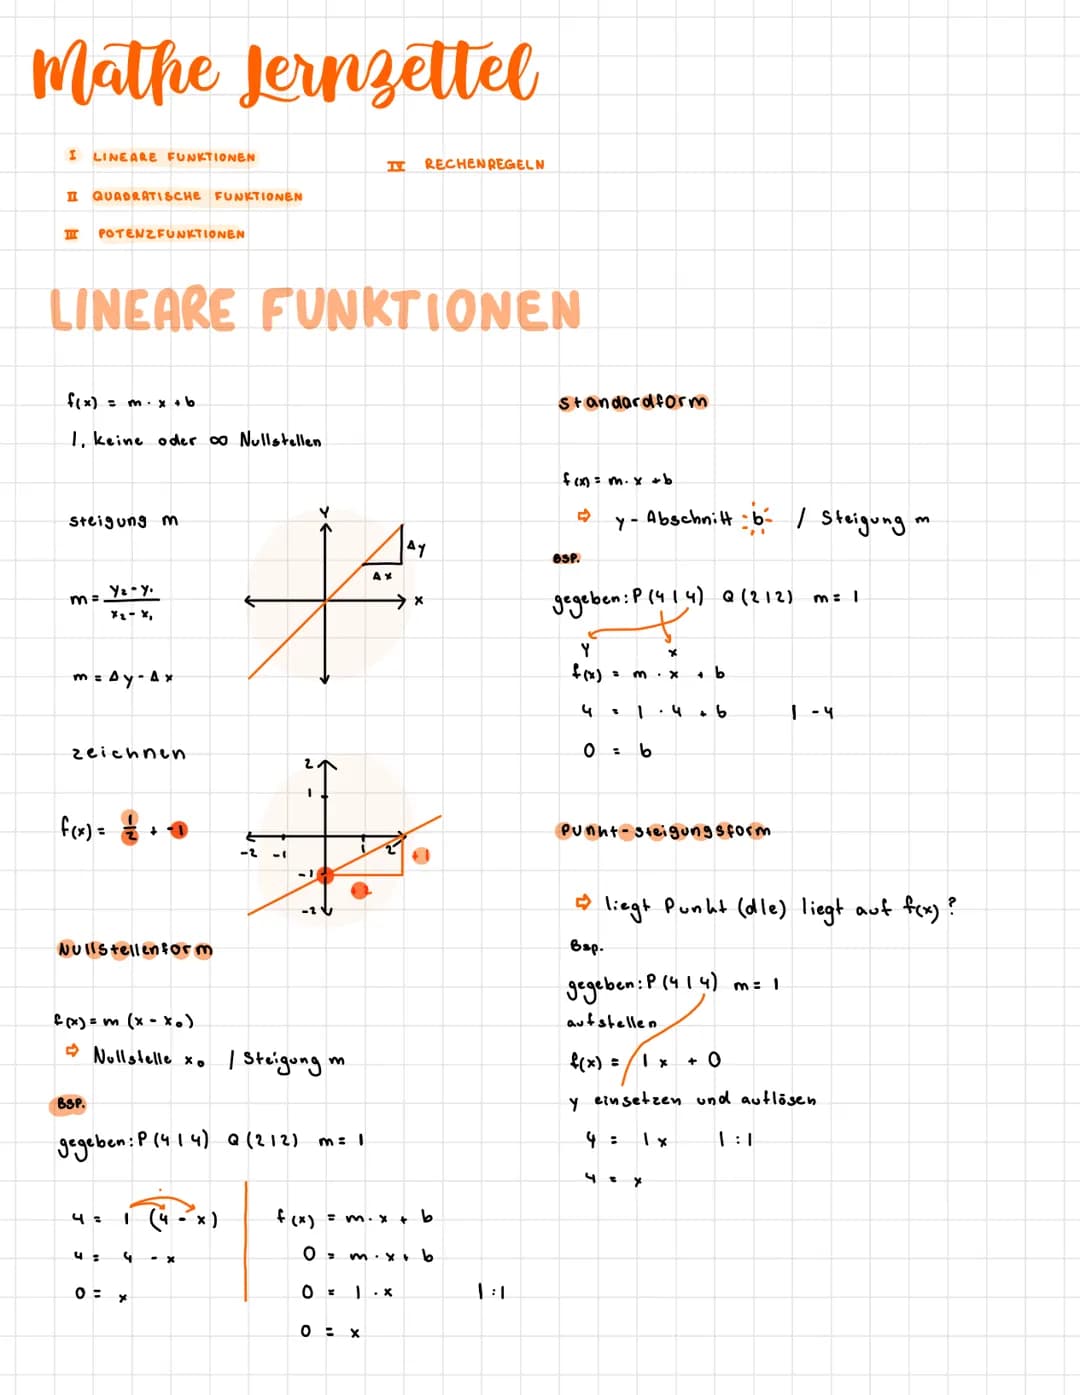 Mathe Lernzettel
I LINEARE FUNKTIONEN
II QUADRATISCHE FUNKTIONEN
III POTENZFUNKTIONEN
IV RECHENREGELN
LINEARE FUNKTIONEN
f(x) = m · x + b
1, keine oder ∞ Nullstellen
steigung m
m = (y₂ - y₁) / (x₂ - x₁)
m = Δy - Δx
Y
Δy
Δx
x
zeichnen
f(x) = 1/2 + -1
2
1
-2 -1 1 2
+1
-1
-2
Nullstellenform
f(x) = m (x - x₀)
⇨ Nullstelle x₀ / Steigung m
BSP.
gegeben: P (4 | 4) Q (2 | 2) m = 1
4 = 1 (4 - x)
4 = 4 - x
0 = x
f(x) = m · x + b
0 = m · x + b
0 = 1 · x | :1
0 = x
standardform
f(x) = m · x + b
⇨ y - Abschnitt b / Steigung m
BSP.
gegeben: P (4 | 4) Q (2 | 2) m = 1
Y x
f(x) = m · x + b
4 = 1 · 4 + b | -4
0 = b
Punkt-steigungsform
⇨ liegt Punkt (d|e) liegt auf f(x) ?
Bsp.
gegeben: P (4 | 4) m = 1
aufstellen
f(x) = 1x + 0
y einsetzen und auflösen
4 = 1x | :1
4 = x